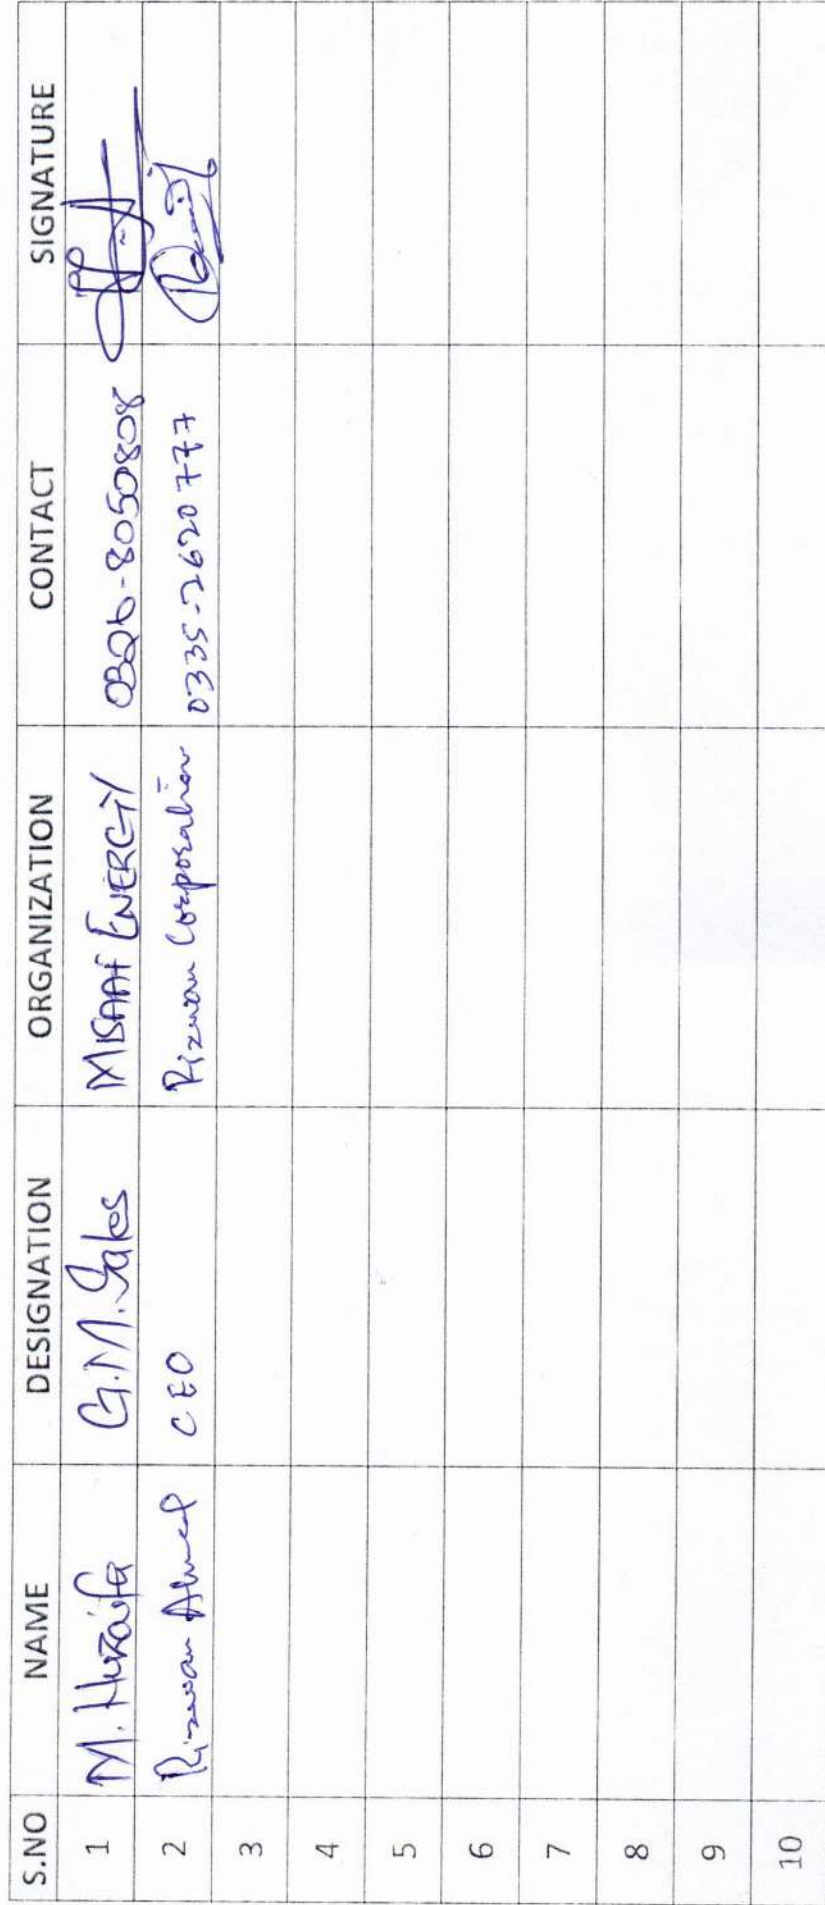 S.NO NAME DESIGNATION ORGANIZATION CONTACT SIGNATURE
1 M. Huzaifa G.M. Sales MISAAF ENERGY 0326-8050808
2 Rizwan Ahmed CEO Rizwan Corporation 0335-2620777
3
4
5
6
7
8
9
10